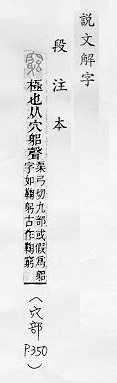 說文解字
段注本
極也从穴躳聲
渠弓切九部或假為躳
字如鞠躬古作鞠窮
（穴部
P350）